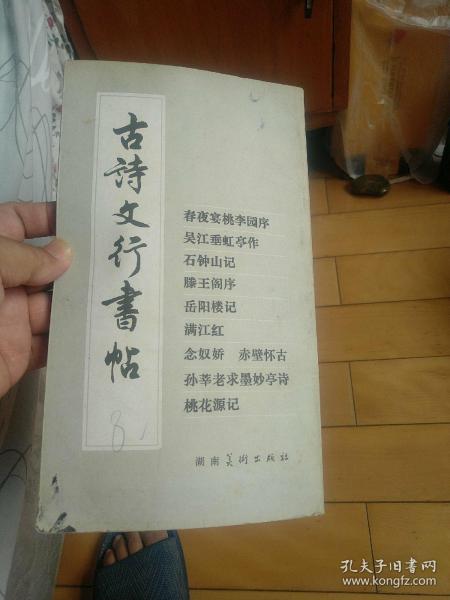 古詩文行書帖
春夜宴桃李园序
吴江垂虹亭作
石钟山记
滕王阁序
岳阳楼记
满江红
念奴娇 赤壁怀古
孙莘老求墨妙亭诗
桃花源记
湖南美術出版社
8
孔夫子旧书网
www.kongfz.com